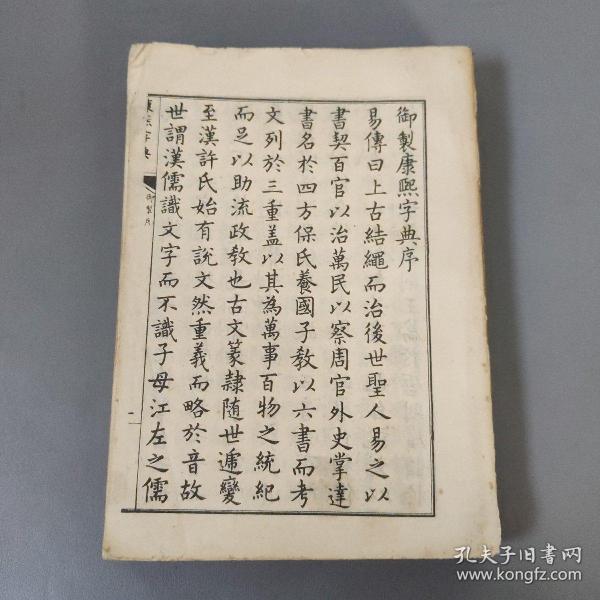 御製康熙字典序
易傳曰上古結繩而治後世聖人易之以
書契百官以治萬民以察周官外史掌達
書名於四方保氏養國子敎以六書而考
文列於三重盖以其為萬事百物之統紀
而足以助流政敎也古文篆隸随世遞變
至漢許氏始有說文然重義而略於音故
世謂漢儒識文字而不識子母江左之儒
康熙字典
御製序
一
孔夫子旧书网
www.kongfz.com